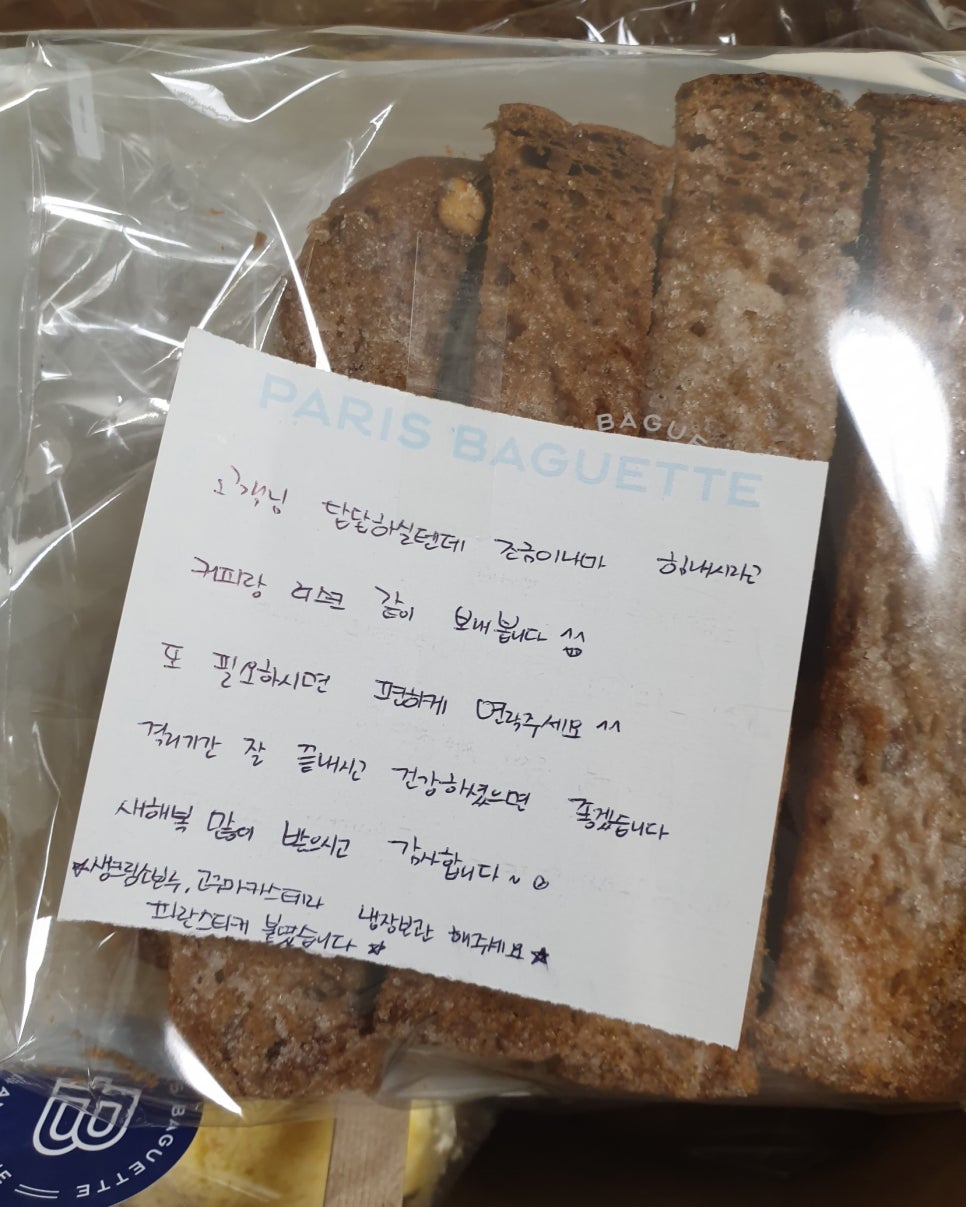 BAGUE
PARIS BAGUETTE
고객님 답답하실텐데 조금이나마 힘내시라고
커피랑 러스크 같이 보내봅니다 ^^
또 필요하시면 편하게 연락주세요 ^^
격리기간 잘 끝내시고 건강하셨으면 좋겠습니다
새해복 많이 받으시고 감사합니다~
☆생크림소보루, 고구마카스테라 냉장보관 해주세요☆
파란스티커 붙였습니다 ☆
BAGUETTE